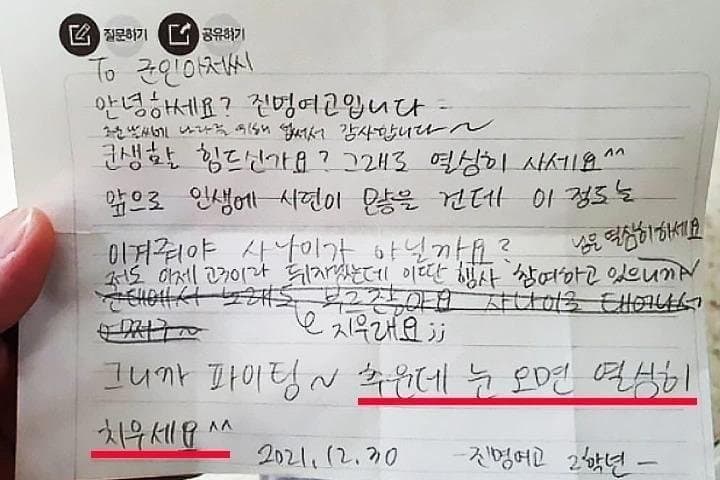 질문하기 공유하기
To 군인아저씨
안녕하세요? 진명여고입니다
추운 날씨에 나라를 위해 힘써서 감사합니다~
군생활 힘드신가요? 그래도 열심히 사세요^^
앞으로 인생에 시련이 많을 건데 이 정도는
이겨줘야 사나이가 아닐까요?
님은 열심히 하세요
저도 이제 고3이라 뒤지겠는데 이딴 행사 참여하고 있으니까~
군대에서 노래도 부르잖아요 사나이로 태어나서
어쩌구~
지우래요;;
그니까 파이팅~ 추운데 눈 오면 열심히
치우세요^^
2021.12.30 -진명여고 2학년-